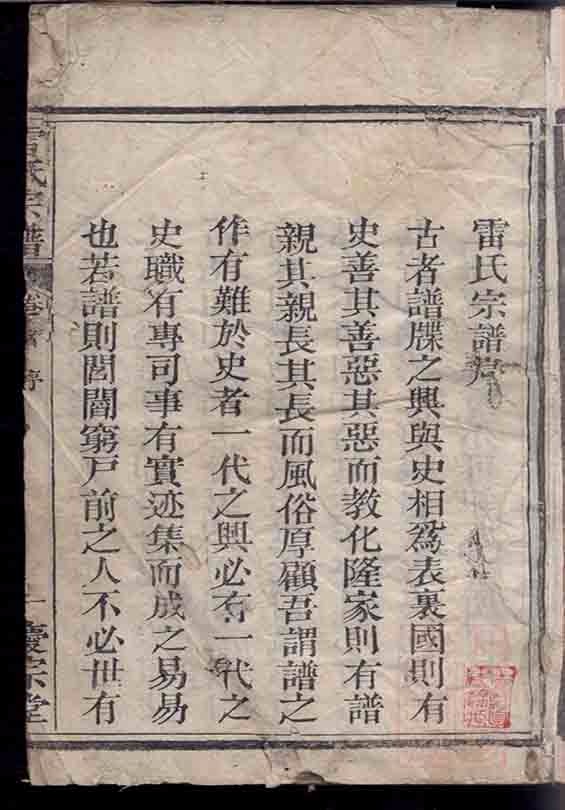 雷氏宗譜序
古者譜牒之興與史相為表裏國則有
史善其善惡其惡而教化隆家則有譜
親其親長其長而風俗厚顧吾謂譜之
作有難於史者一代之興必有一代之
史職有專司事有實迹集而成之易易
也若譜則閭閻窮戶前之人不必世有
雷氏宗譜
卷首 序
一 慶宗堂